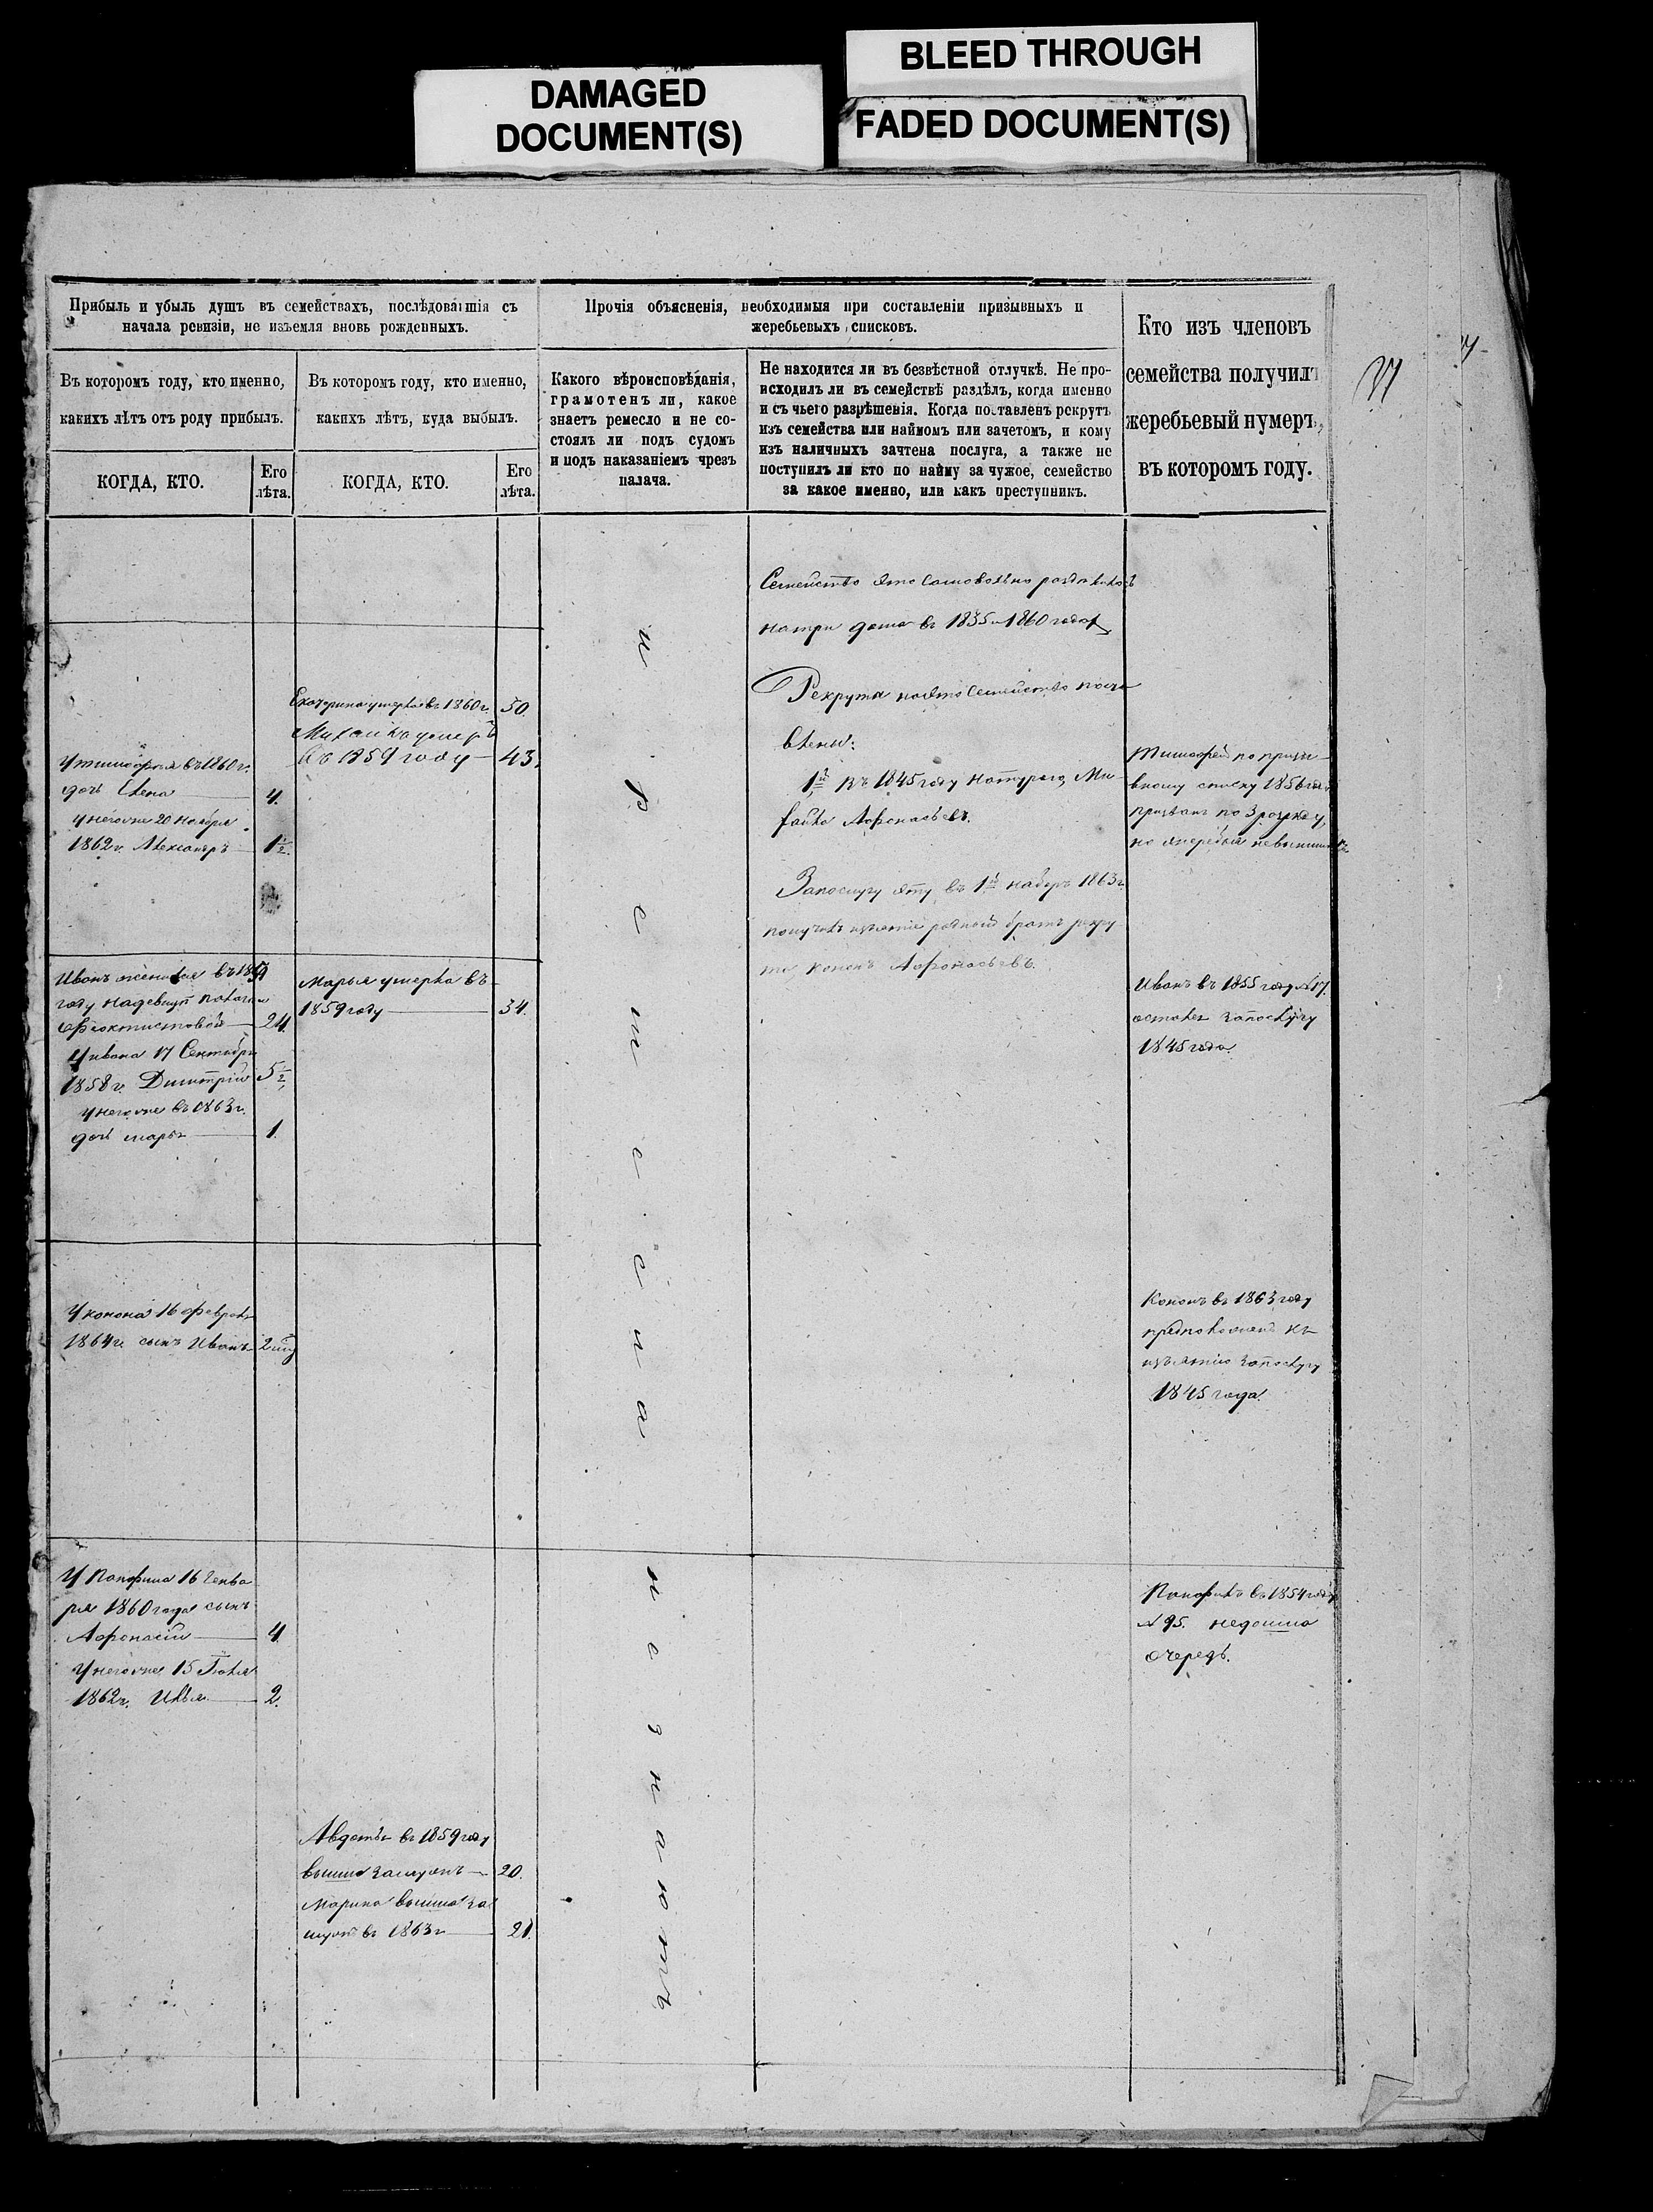 DAMAGED
DOCUMENT(S)
BLEED THROUGH
FADED DOCUMENT(S)
Прибыль и убыль душъ въ семействахъ, послѣдовавшія съ
начала ревизіи, не изъемля вновь рожденныхъ.
Въ которомъ году, кто именно,
какихъ лѣтъ отъ роду прибылъ.
КОГДА, КТО.
Его
лѣта.
Въ которомъ году, кто именно,
какихъ лѣтъ, куда выбылъ.
КОГДА, КТО.
Его
лѣта.
Прочія объясненія, необходимыя при составленіи призывныхъ и
жеребьевыхъ списковъ.
Какого вѣроисповѣданія,
грамотенъ ли, какое
знаетъ ремесло и не со-
стоялъ ли подъ судомъ
и подъ наказаніемъ чрезъ
палача.
Не находится ли въ безвѣстной отлучкѣ. Не про-
исходилъ ли въ семействѣ раздѣлъ, когда именно
и съ чьего разрѣшенія. Когда поставленъ рекрутъ
изъ семейства или наймомъ или зачетомъ, и кому
изъ наличныхъ зачтена послуга, а также не
поступилъ ли кто по найму за чужое, семейство
за какое именно, или какъ преступникъ.
Кто изъ членовъ
семейства получилъ
жеребьевый нумеръ,
въ которомъ году.
37
У тимофея въ 1860 г.
дочь Елена 4.
у него же 20 Ноября
1862 г. Александръ 1½.
Иванъ женился въ 1859
году на девицѣ
Феоктистовой 24.
У ивана 17 Сентября
1858 г. Димитрій 5½
у него же въ 1863 г.
дочь марья 1.
У конона 16 февраля
1864 г. сынъ Иванъ 2 нед
У Панфила 16 Генва
ря 1860 года сынъ
Афонасій 4.
У него же 15 Іюля
1862 г. Илья 2.
Екатерина умерла въ 1860 г. 50.
Михайла умеръ
въ 1859 году 43.
Марья умерла въ
1859 году 34.
Авдотья въ 1859 году
вышла замужъ 20.
Марина вышла за
мужъ въ 1863 г 21.
Семейство это самовольно раздѣлилось
на три дома въ 1835 и 1860 годах
Рекрута на это Семейство поста
влены:
1й Въ 1845 году Натурою, Ми
хайло Афонасьевъ.
За послугу эту въ 1й наборъ 1863 г
получилъ изъятіе родной братъ рекру
та Кононъ Афонасьевъ.
Тимофей по призы
вному списку 1856 года
призванъ по 3 розряду,
но
Иванъ въ 1855 году № 17.
оставленъ за послугу
1845 года.
Кононъ въ 1863 году
къ
изъятію за послугу
1845 года.
Панфилъ въ 1854 году
№ 95. недошла
очередь.